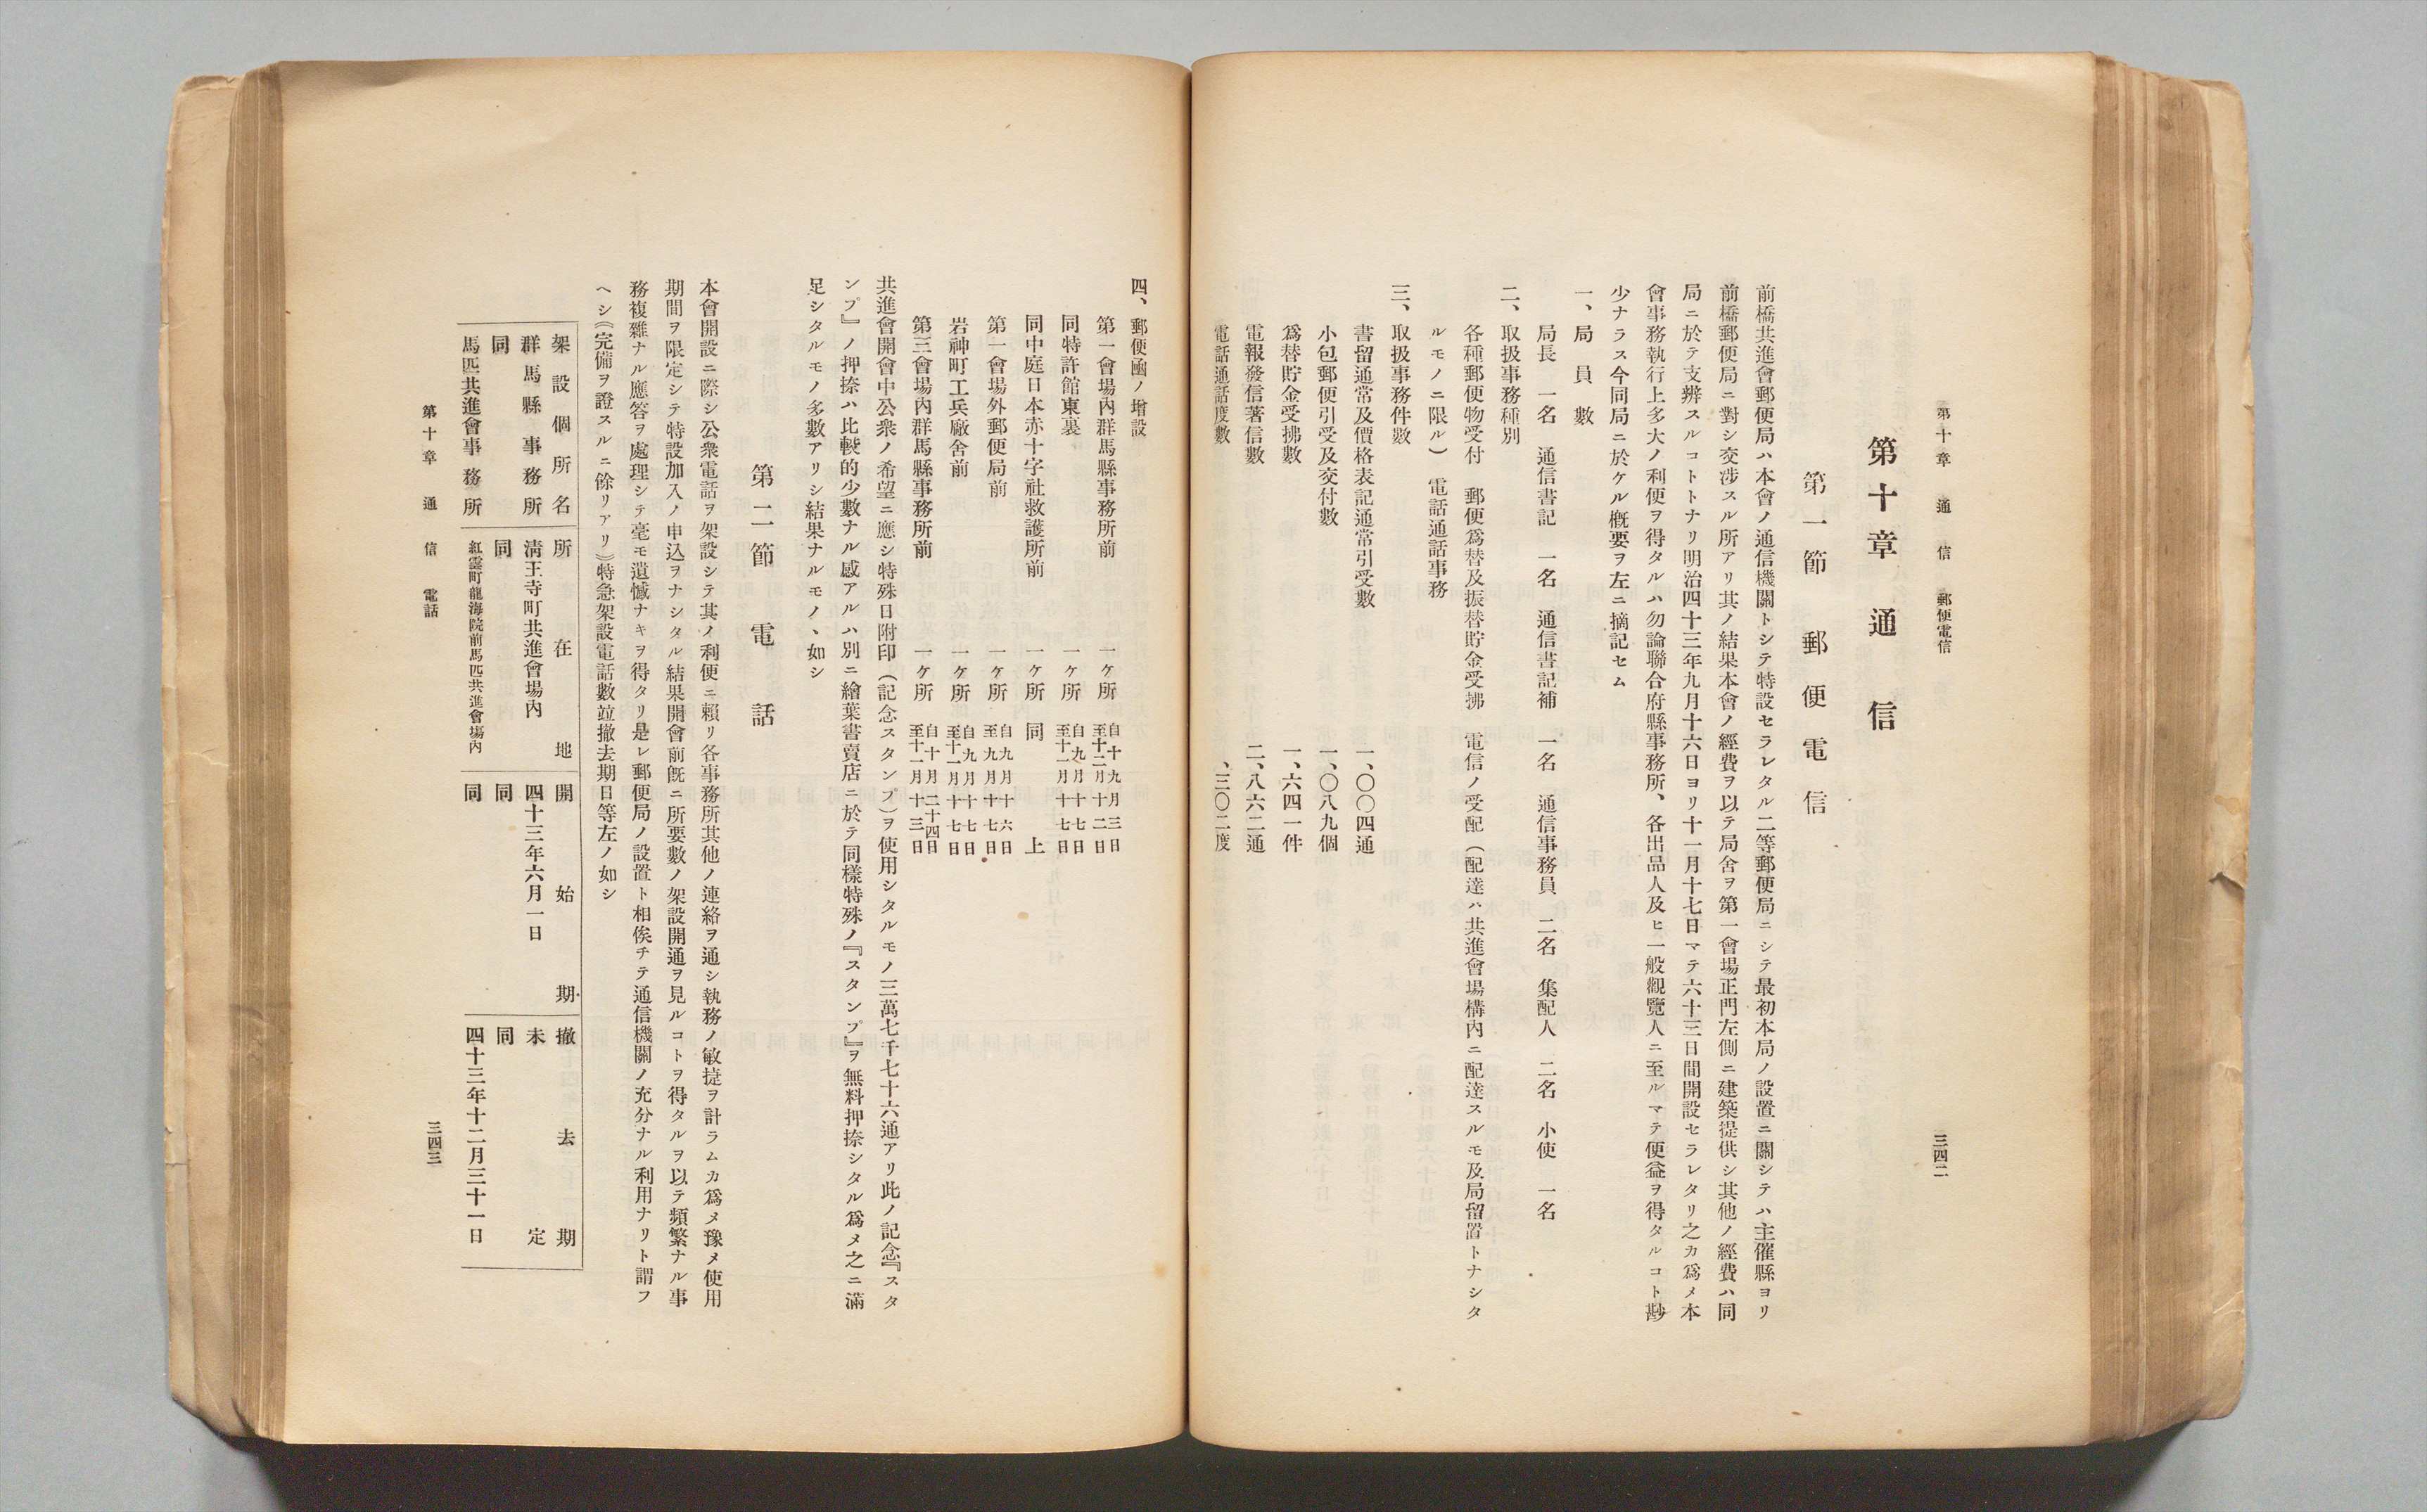 第十章　通　信　郵便電信
三四二
第十章　通　信
第一節　郵便電信
前橋共進會郵便局ハ本會ノ通信機關トシテ特設セラレタル二等郵便局ニシテ最初本局ノ設置ニ關シテハ主催縣ヨリ
前橋郵便局ニ對シ交渉スル所アリ其ノ結果本會ノ經費ヲ以テ局舍ヲ第一會場正門左側ニ建築提供シ其他ノ經費ハ同
局ニ於テ支辨スルコトトナリ明治四十三年九月十六日ヨリ十一月十七日マテ六十三日間開設セラレタリ之カ爲メ本
會事務執行上多大ノ利便ヲ得タルハ勿論聯合府縣事務所、各出品人及ヒ一般觀覽人ニ至ルマテ便益ヲ得タルコト尠
少ナラス今同局ニ於ケル概要ヲ左ニ摘記セム
一、局　員　數
局長　一名　通信書記　一名　通信書記補　一名　通信事務員　二名　集配人　二名　小使　一名
二、取扱事務種別
各種郵便物受付　郵便爲替及振替貯金受拂　電信ノ受配（配達ハ共進會場構内ニ配達スルモ及局留置トナシタ
ルモノニ限ル）　電話通話事務
三、取扱事務件數
書留通常及價格表記通常引受數　一、〇〇四通
小包郵便引受及交付數　一、〇八九個
爲替貯金受拂數　一、六四一件
電報發信著信數　二、八六二通
電話通話度數　、三〇二度
四、郵便凾ノ增設
第一會場内群馬縣事務所前　一ケ所　自十九月三日至十二月十二日
同特許館東裏　一ケ所　自九月十七日至十一月十七日
同中庭日本赤十字社救護所前　一ケ所　同　上
第一會場外郵便局前　一ケ所　自九月十六日至九月十七日
岩神町工兵廠舍前　一ケ所　自九月十七日至十一月十七日
第三會場内群馬縣事務所前　一ケ所　自十月二十四日至十一月十三日
共進會開會中公衆ノ希望ニ應シ特殊日附印（記念スタンプ）ヲ使用シタルモノ三萬七千七十六通アリ此ノ記念『スタ
ンプ』ノ押捺ハ比較的少數ナル感アルハ別ニ繪葉書賣店ニ於テ同樣特殊ノ『スタンプ』ヲ無料押捺シタル爲メ之ニ滿
足シタルモノ多數アリシ結果ナルモノヽ如シ
第二節　電　話
本會開設ニ際シ公衆電話ヲ架設シテ其ノ利便ニ賴リ各事務所其他ノ連絡ヲ通シ執務ノ敏捷ヲ計ラムカ爲メ豫メ使用
期間ヲ限定シテ特設加入ノ申込ヲナシタル結果開會前旣ニ所要數ノ架設開通ヲ見ルコトヲ得タルヲ以テ頻繁ナル事
務複雜ナル應答ヲ處理シテ毫モ遺憾ナキヲ得タリ是レ郵便局ノ設置ト相俟チテ通信機關ノ充分ナル利用ナリト謂フ
ヘシ《完備ヲ證スルニ餘リアリ》特急架設電話數竝撤去期日等左ノ如シ
架設個所名　所在地　開始期　撤去期
群馬縣事務所　淸王寺町共進會場内　四十三年六月一日　未定
同　同　同　同
馬匹共進會事務所　紅雲町龍海院前馬匹共進會場内　同　四十三年十二月三十一日
第十章　通　信　電話
三四三